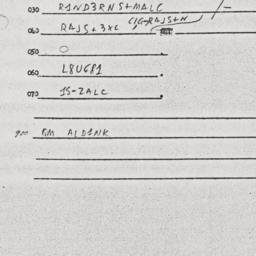 030 R1ND3RNS+MALC
040 RAJS+3XC C/G-RAJS+N
050 O
060 L8U681
070 1S-2ALC
900 PM ALDINK